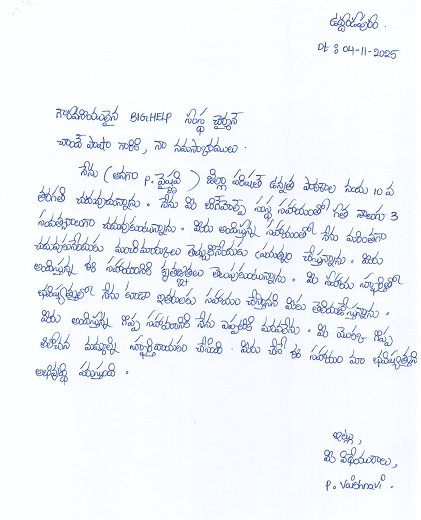 ఉద్దండపురం.
Dt : 04-11-2025
గౌరవనీయులైన BIGHELP సంస్థ చైర్మన్
చాంద్ పాషా గారికి, నా నమస్కారములు.
నేను (అనగా P. వైష్ణవి) జిల్లా పరిషత్ ఉన్నత పాఠశాల నందు 10 వ
తరగతి చదువుచున్నాను. నేను మీ బిగ్‌హెల్ప్ సంస్థ సహాయంతో గత నాలుగు 3
సంవత్సరాలుగా చదువుకుంటున్నాను. మీరు అందిస్తున్న సహాయంతో నేను మరింతగా
చదువుకునేందుకు మంచిమార్కులు తెచ్చుకొనేందుకు ప్రయత్నం చేస్తున్నాను. మీరు
అందిస్తున్న ఈ సహాయానికి కృతజ్ఞతలు తెలుపుకుంటున్నాను. మీ సహాయ స్ఫూర్తితో
భవిష్యత్తులో నేను కూడా ఇతరులకు సహాయం చేస్తానని మీకు తెలియజేస్తున్నాను.
మీరు అందిస్తున్న గొప్ప సహాయానికి నేను ఎప్పటికీ మరువలేను. మీ యొక్క గొప్ప
ఆలోచన మమ్మల్ని స్ఫూర్తిదాయకం చేసినది. మీరు చేసే ఈ సహాయం మా భవిష్యత్తుకి
అభివృద్ధి పరుస్తుంది.
ఇట్లు,
మీ విధేయురాలు,
P. Vaishnavi.